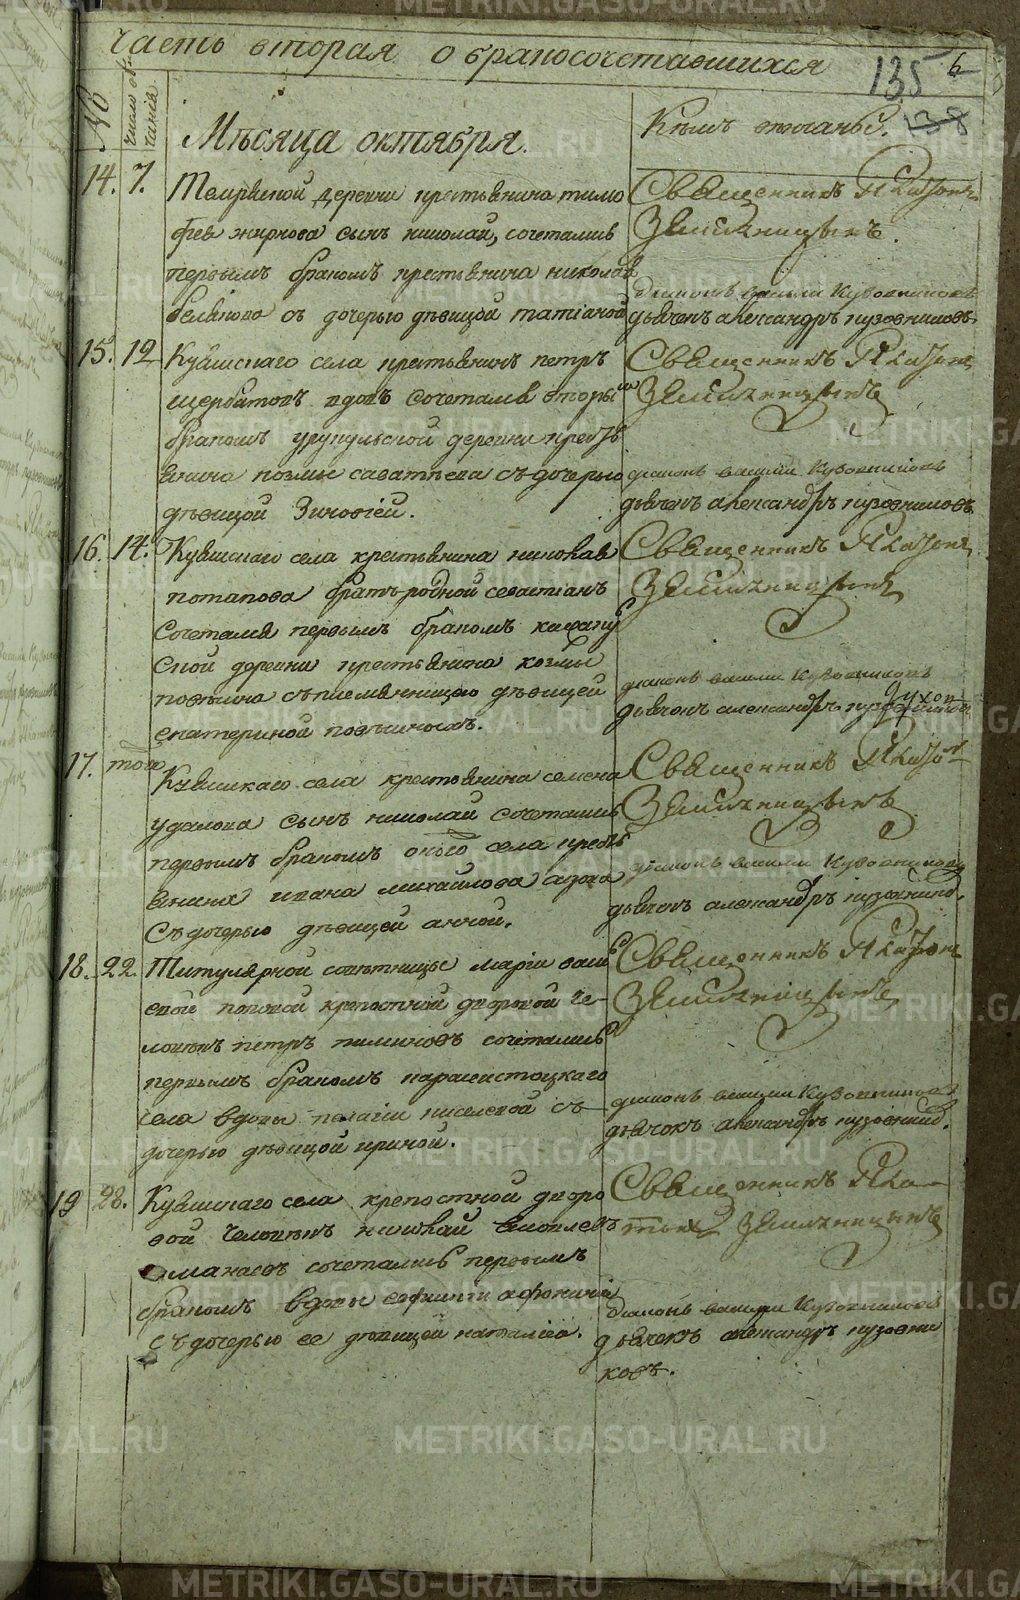 часть вторая о бракосочетавшихся
135 6
138
№
число вен
чанія
Мѣсяца октября.
Кѣмъ венчаны.
14. 7.
деревни крестьянина тимо
фея жирнова сынъ николай, сочетался
первымъ бракомъ крестьянина николая
белякова съ дочерью дѣвицой татіаной
Священникъ Платонъ
Земляницынъ.
діаконъ василий Кузовниковъ
дьячекъ александръ кузовниковъ.
15. 12
Кувшскаго села крестьянинъ петръ
щербаковъ вдовъ сочетался вторы
бракомъ деревни кресть
янина козмы саватѣева съ дочерью
дѣвицой Зиновіей.
Священникъ Платонъ
Земляницынъ
діаконъ василий Кузовниковъ
дьячекъ александръ кузовниковъ
16. 14.
Кувшскаго села крестьянина николая
потапова братъ родной севастіанъ
сочетался первымъ бракомъ
ской деревни крестьянина козмы
съ племянницею дѣвицей
екатериной
Священникъ Платонъ
Земляницынъ
діаконъ василий Кузовниковъ
дьячекъ александръ
17. того
Кувшскаго села крестьянина семена
удалова сынъ николай сочетался
первымъ бракомъ оного села кресть
янина ивана михайлова
съ дочерью дѣвицей анной.
Священникъ Платон
Земляницынъ
діаконъ василий Кузовников
дьячекъ александръ кузовников.
18. 22.
Титулярной совѣтницы маріи васи
евой поповой крепостной дворовой че-
ловѣкъ петръ сочетался
первымъ бракомъ
села вдовы пелагіи киселевой съ
дочерью дѣвицой ириной.
Священникъ Платон
Земляницынъ
діаконъ василий Кузовников
дьячокъ александръ кузовников.
19 28.
Кувшскаго села крепостной дворо
вой человѣкъ николай
сочетался первымъ
бракомъ вдовы
съ дочерью ее дѣвицей наталіей.
Священникъ Пла-
тонъ Земляницынъ
діаконъ василий Кузовниковъ
дьячекъ александръ кузовни
ковъ.
METRIKI.GASO-URAL.RU